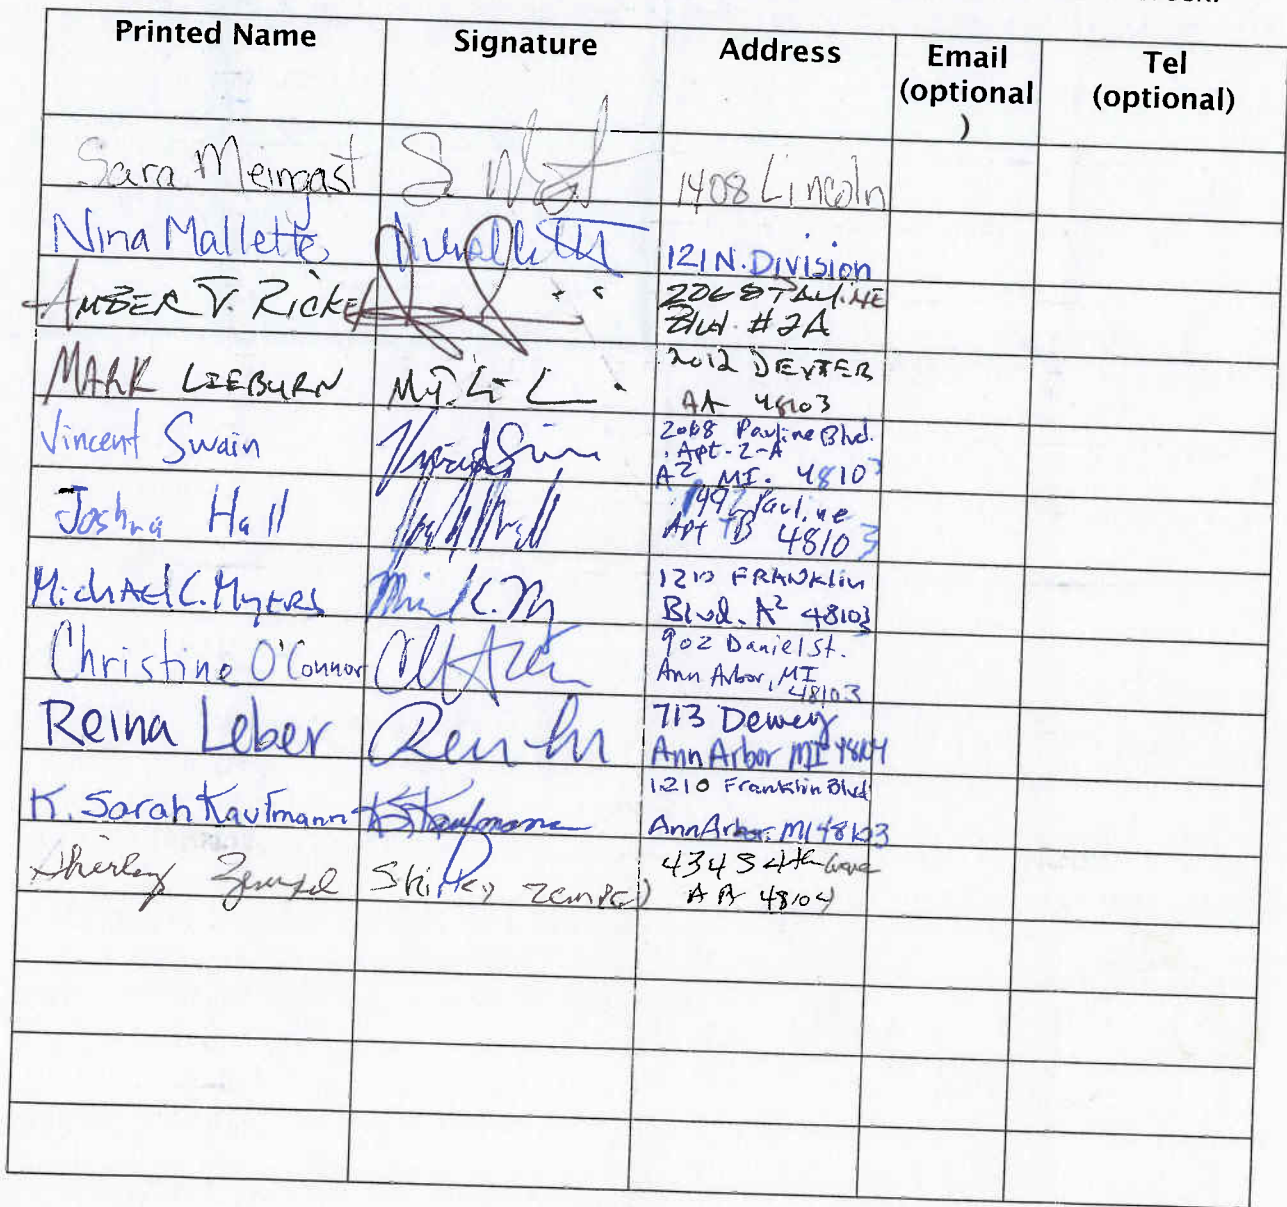 Printed Name Signature Address Email (optional) Tel (optional)
Sara Meingast 1408 Lincoln
Nina Mallette 121 N. Division
AMBER V. RICKE 2068 PAULINE
Blvd. #2A
MARK LIEBURN 2012 DEXTER
AA 48103
Vincent Swain 2068 Pauline Blvd.
Apt-2-A
A2 MI. 48103
Joshua Hall 1492 Pauline
Apt TB 48103
MichAEl C. MyERS 1210 FRANKlin
Blvd. A2 48103
Christine O'Connor 902 Daniel St.
Ann Arbor, MI
48103
Reina Leber 713 Dewey
Ann Arbor MI 48104
K. Sarah Kaufmann K Kaufmann 1210 Franklin Blvd
Ann Arbor, MI 48103
Shirley Zempel Shirley Zempel 434 S 4th
AA 48104